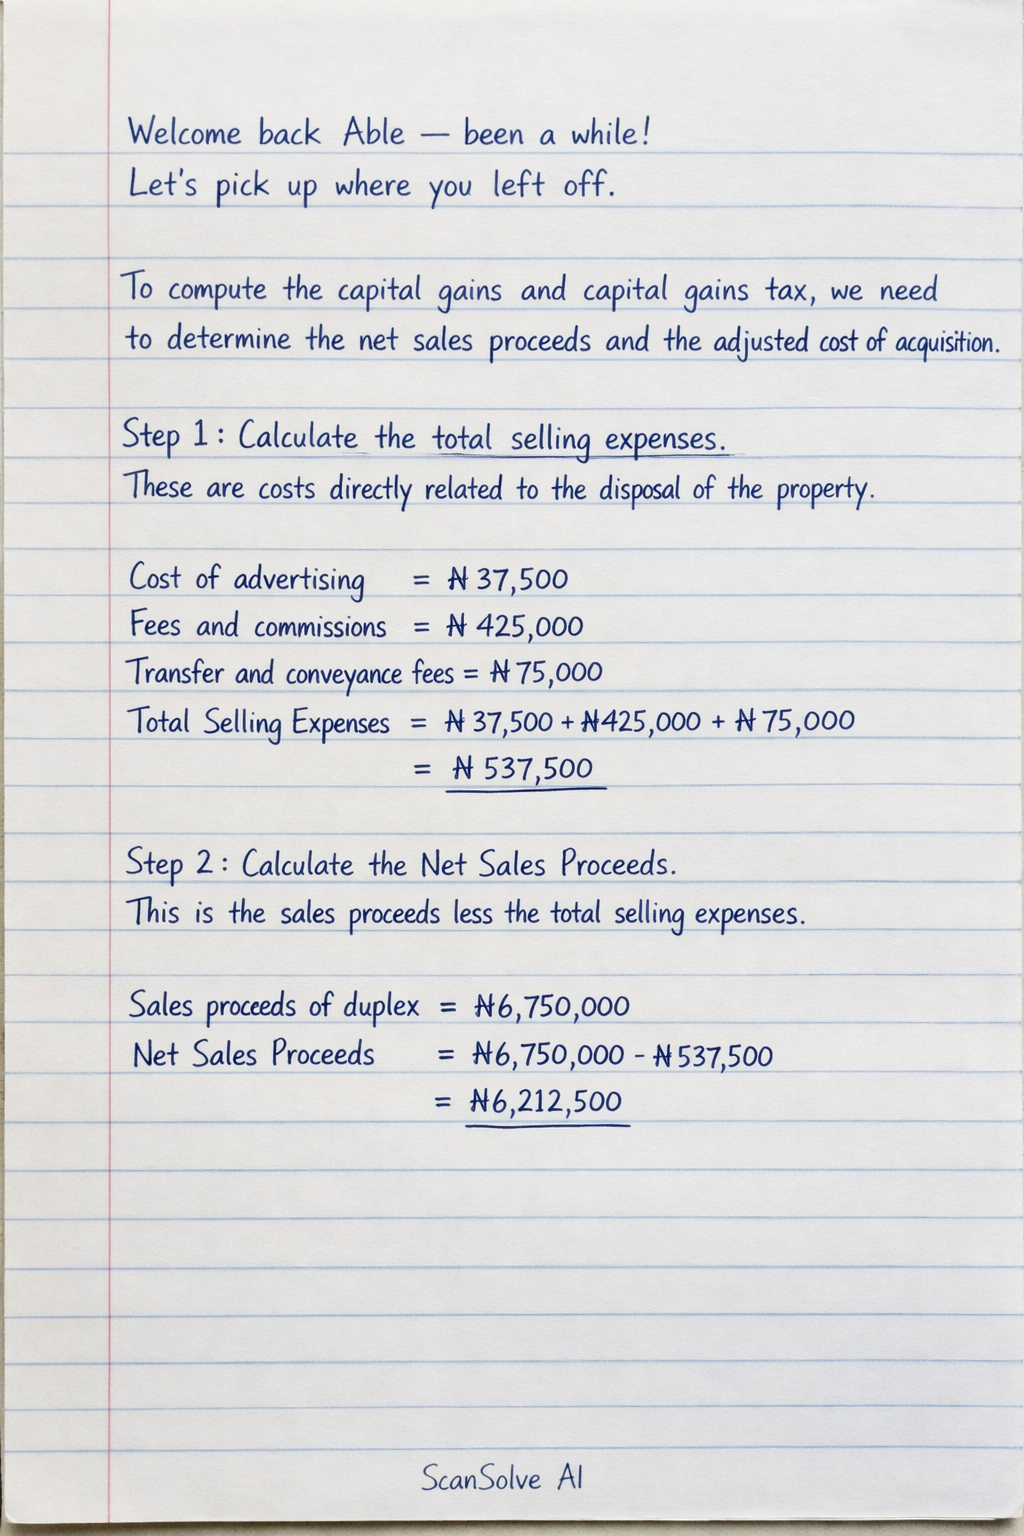 Welcome back Able — been a while!
Let's pick up where you left off.
To compute the capital gains and capital gains tax, we need
to determine the net sales proceeds and the adjusted cost of acquisition.
Step 1: Calculate the total selling expenses.
These are costs directly related to the disposal of the property.
Cost of advertising = ₦ 37,500
Fees and commissions = ₦ 425,000
Transfer and conveyance fees = ₦ 75,000
Total Selling Expenses = ₦ 37,500 + ₦425,000 + ₦ 75,000
= ₦ 537,500
Step 2: Calculate the Net Sales Proceeds.
This is the sales proceeds less the total selling expenses.
Sales proceeds of duplex = ₦6,750,000
Net Sales Proceeds = ₦6,750,000 - ₦537,500
= ₦6,212,500
ScanSolve AI